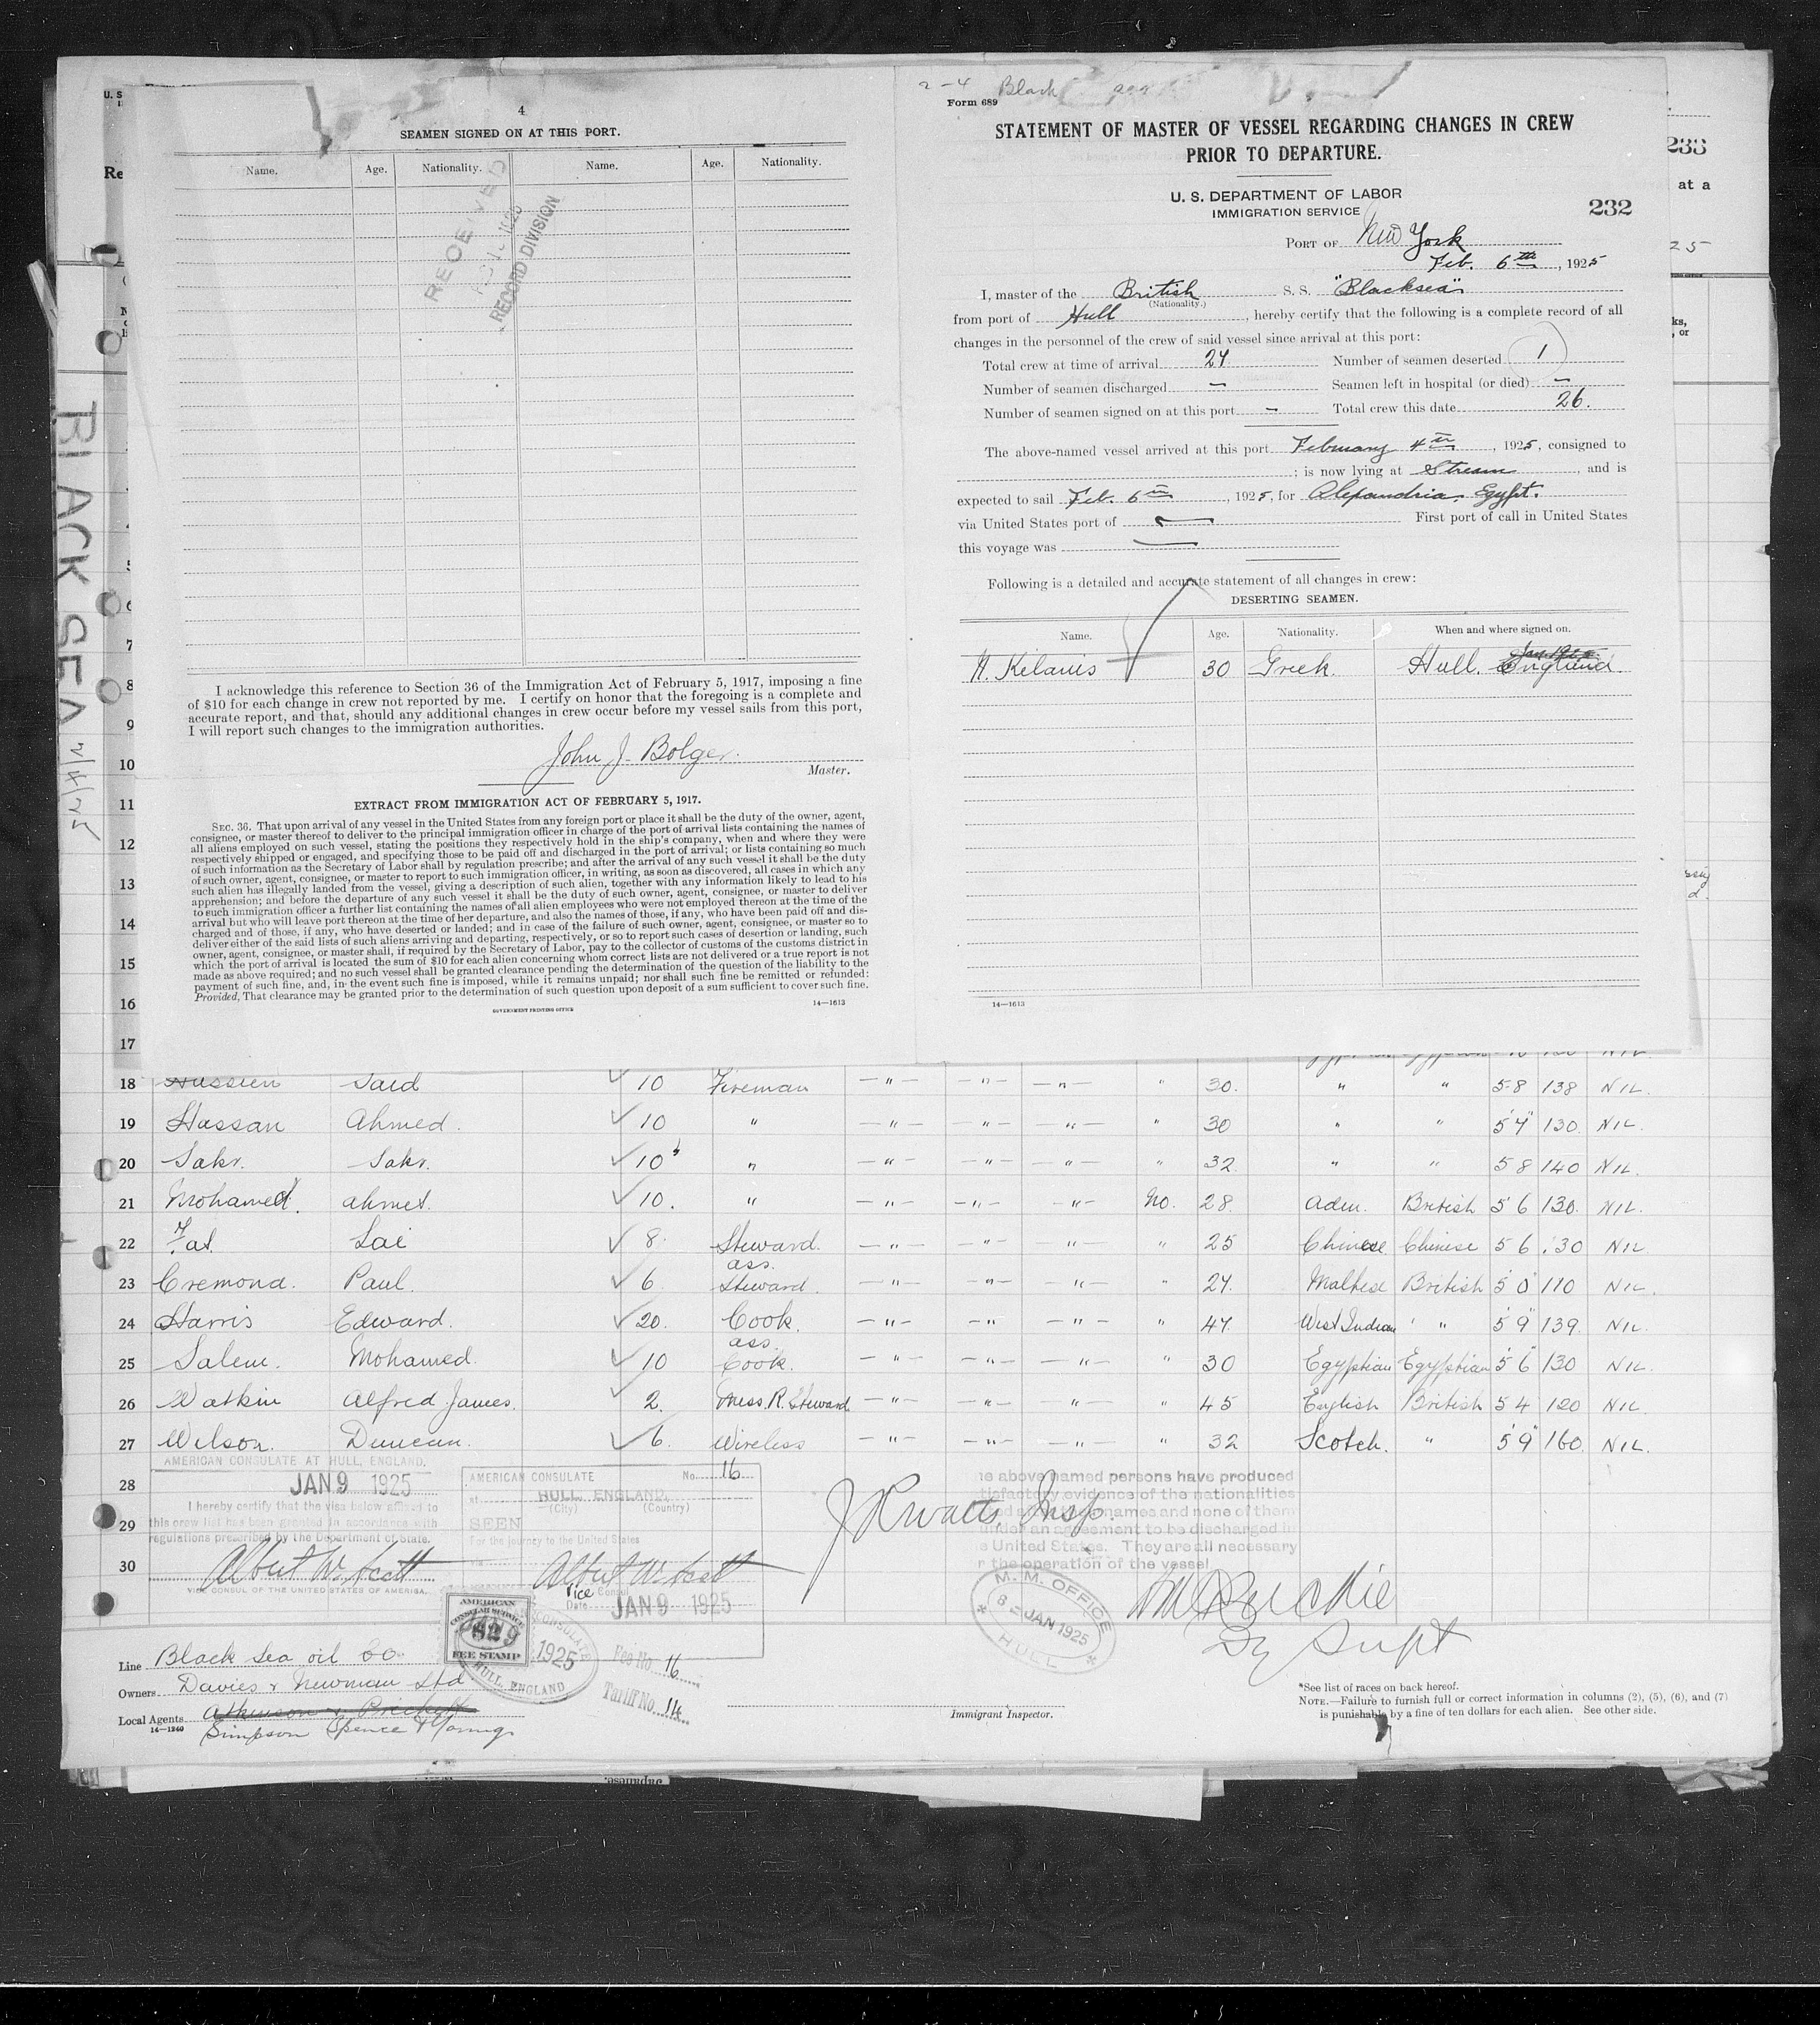 4
SEAMEN SIGNED ON AT THIS PORT.
Name. Age. Nationality. Name. Age. Nationality.
RECEIVED
1925
RECORD DIVISION
I acknowledge this reference to Section 36 of the Immigration Act of February 5, 1917, imposing a fine
of $10 for each change in crew not reported by me. I certify on honor that the foregoing is a complete and
accurate report, and that, should any additional changes in crew occur before my vessel sails from this port,
I will report such changes to the immigration authorities.
John J. Bolger.
Master.
EXTRACT FROM IMMIGRATION ACT OF FEBRUARY 5, 1917.
SEC. 36. That upon arrival of any vessel in the United States from any foreign port or place it shall be the duty of the owner, agent,
consignee, or master thereof to deliver to the principal immigration officer in charge of the port of arrival lists containing the names of
all aliens employed on such vessel, stating the positions they respectively hold in the ship's company, when and where they were
respectively shipped or engaged, and specifying those to be paid off and discharged in the port of arrival; or lists containing so much
of such information as the Secretary of Labor shall by regulation prescribe; and after the arrival of any such vessel it shall be the duty
of such owner, agent, consignee, or master to report to such immigration officer, in writing, as soon as discovered, all cases in which any
such alien has illegally landed from the vessel, giving a description of such alien, together with any information likely to lead to his
apprehension; and before the departure of any such vessel it shall be the duty of such owner, agent, consignee, or master to deliver
to such immigration officer a further list containing the names of all alien employees who were not employed thereon at the time of the
arrival but who will leave port thereon at the time of her departure, and also the names of those, if any, who have been paid off and dis-
charged and of those, if any, who have deserted or landed; and in case of the failure of such owner, agent, consignee, or master so to
deliver either of the said lists of such aliens arriving and departing, respectively, or so to report such cases of desertion or landing, such
owner, agent, consignee, or master shall, if required by the Secretary of Labor, pay to the collector of customs of the customs district in
which the port of arrival is located the sum of $10 for each alien concerning whom correct lists are not delivered or a true report is not
made as above required; and no such vessel shall be granted clearance pending the determination of the question of the liability to the
payment of such fine, and, in the event such fine is imposed, while it remains unpaid; nor shall such fine be remitted or refunded:
Provided, That clearance may be granted prior to the determination of such question upon deposit of a sum sufficient to cover such fine.
14—1613
GOVERNMENT PRINTING OFFICE
2-4 Black Sea
Form 689
STATEMENT OF MASTER OF VESSEL REGARDING CHANGES IN CREW
PRIOR TO DEPARTURE.
U. S. DEPARTMENT OF LABOR
IMMIGRATION SERVICE
232
PORT OF New York
Feb. 6th, 1925
I, master of the British S. S. "Blacksea"
(Nationality.)
from port of Hull, hereby certify that the following is a complete record of all
changes in the personnel of the crew of said vessel since arrival at this port:
Total crew at time of arrival 27 Number of seamen deserted 1
Number of seamen discharged — Seamen left in hospital (or died) —
Number of seamen signed on at this port — Total crew this date 26.
The above-named vessel arrived at this port February 4th, 1925, consigned to
; is now lying at Stream, and is
expected to sail Feb. 6th, 1925, for Alexandria, Egypt.
via United States port of — First port of call in United States
this voyage was —
Following is a detailed and accurate statement of all changes in crew:
DESERTING SEAMEN.
Name. Age. Nationality. When and where signed on.
N. Kelanis 30 Greek. Hull. England.
14—1613
233
at a
25
BLACK SEA 2/4/25
7
8
9
10
11
12
13
14
15
16
17
18 Hussien Said 10 Fireman —"— —"— —"— " 30. " " 5-8 138 NIL.
19 Hassan Ahmed. 10 " —"— —"— —"— " 30 " " 5'7" 130. NIL.
20 Sakr. Sakr. 10 " —"— —"— —"— " 32. " " 5 8 140 NIL.
21 Mohamed. ahmed. 10. " —"— —"— —"— No. 28. Aden. British 5 6 130. NIL.
22 Lai 8. Steward. —"— —"— —"— " 25 Chinese Chinese 5 6 130 NIL
23 Cremona. Paul. 6. ass. Steward. —"— —"— —"— " 27. Maltese British 5'0" 110 NIL.
24 Harris Edward. 20. Cook. —"— —"— —"— " 47. West Indian " 5'9" 139. NIL.
25 Salem. Mohamed. 10 ass. Cook. —"— —"— —"— " 30 Egyptian Egyptian 5'6" 130 NIL.
26 Watkin Alfred James. 2. Mess. R. Steward —"— —"— —"— " 45 English British 5 4 120 NIL
27 Wilson. Duncan. 6. Wireless —"— —"— —"— " 32 Scotch. " 5'9" 160. NIL.
28
29
30
AMERICAN CONSULATE AT HULL, ENGLAND.
JAN 9 1925
I hereby certify that the visa below affixed to
this crew list has been granted in accordance with
regulations prescribed by the Department of State.
Albert W. Scott
VICE CONSUL OF THE UNITED STATES OF AMERICA.
AMERICAN CONSULATE No. 16
at HULL, ENGLAND.
(City) (Country)
SEEN
For the journey to the United States
via
Albert W. Scott
Vice Consul
Date JAN 9 1925
Fee No. 16
Tariff No. 14
AMERICAN
CONSULAR SERVICE
FEE STAMP
1925
HULL, ENGLAND
J R Watts, Insp.
above named persons have produced
evidence of the nationalities
names and none of them
under an agreement to be discharged in
United States. They are all necessary
the operation of the vessel
M. M. OFFICE
8 = JAN 1925
HULL
Dy Supt
Line Black Sea oil Co.
Owners Davies & Newman Ltd
Local Agents Atkinson & Prickett
14—1240
Simpson Spence & Young
Immigrant Inspector.
*See list of races on back hereof.
NOTE.—Failure to furnish full or correct information in columns (2), (5), (6), and (7)
is punishable by a fine of ten dollars for each alien. See other side.
Japanese.